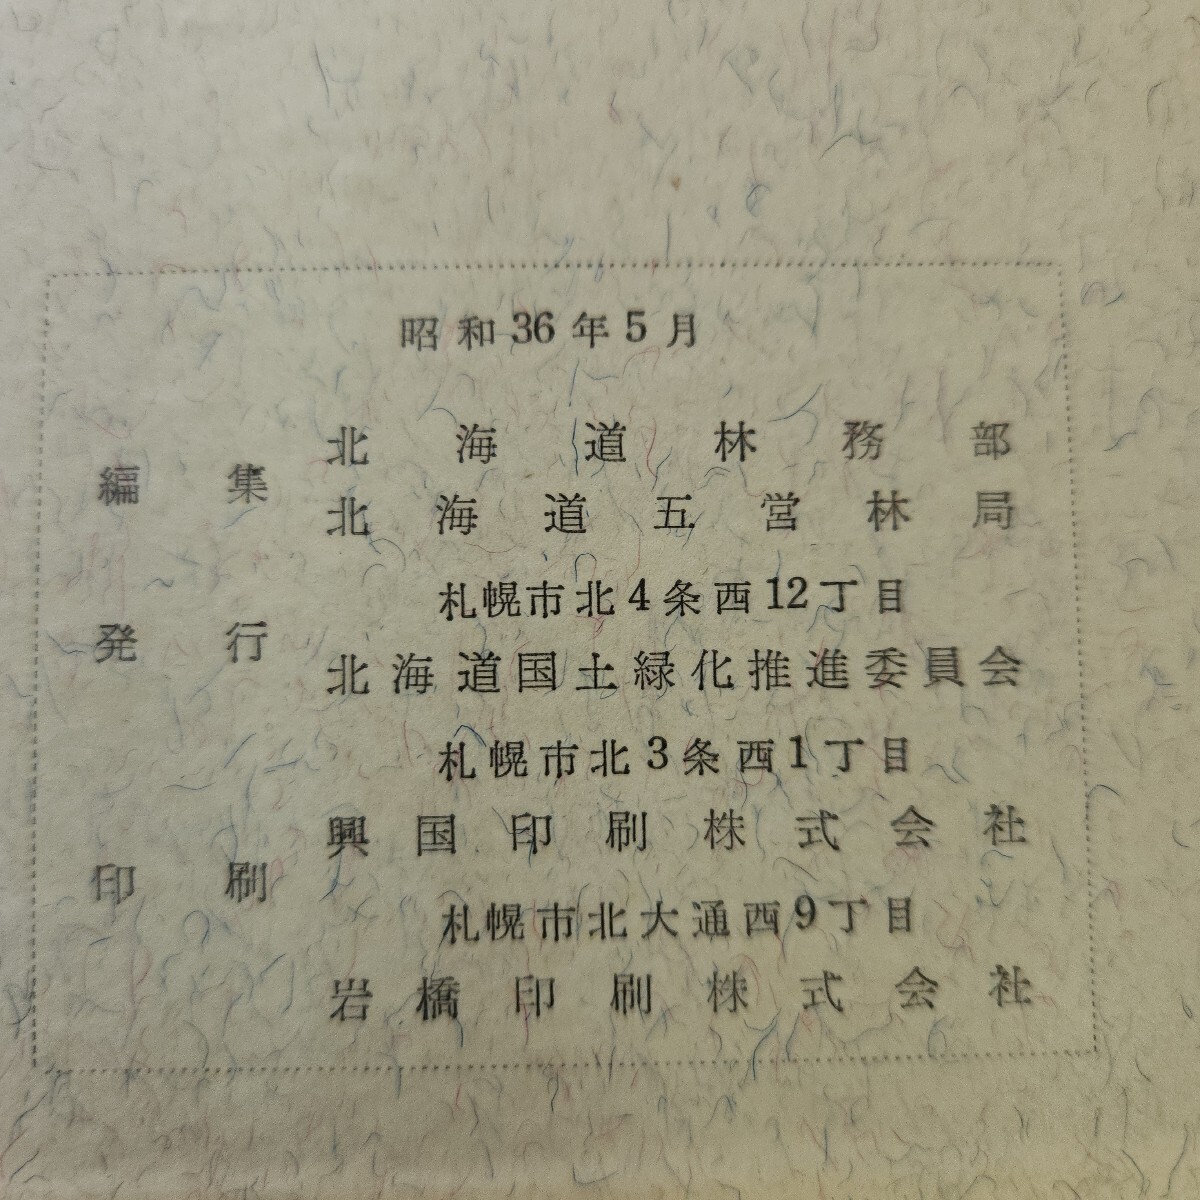 昭和36年5月
編集
北海道林務部
北海道五営林局
札幌市北4条西12丁目
発行
北海道国土緑化推進委員会
札幌市北3条西1丁目
興国印刷株式会社
印刷
札幌市北大通西9丁目
岩橋印刷株式会社